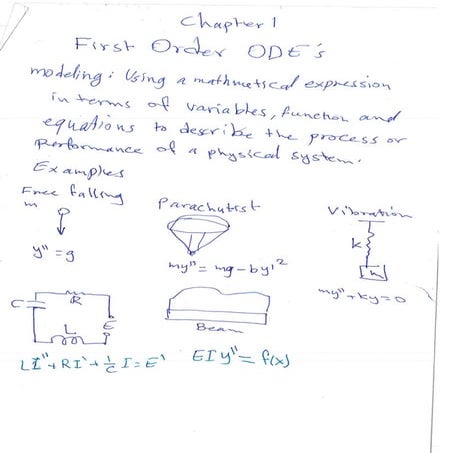 Chapter 1
First Order ODE's
modeling: Using a mathmetical expression
in terms of variables, function and
equations to describe the process or
Performance of a physical system.
Examples
Free falling
Parachutist
Vibration
m
k
m
y" = g
my" = mg - by'²
my" + ky = 0
C
R
L
E
Beam
LI" + RI' + 1/C I = E'
EI y" = f(x)